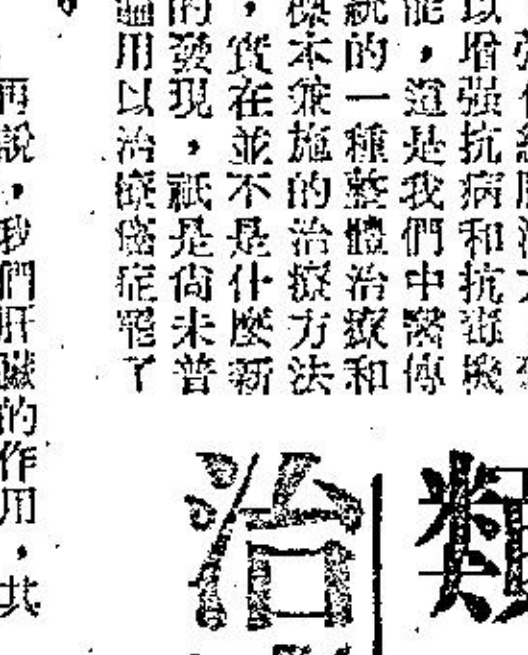 以增强抗病和抗毒機
能，這是我們中醫傳
統的一種整體治療和
標本兼施的治療方法
，實在並不是什麼新
的發現，祇是尚未普
遍用以治療癌症罷了
。
再說，我們肝臟的作用，其
類
治